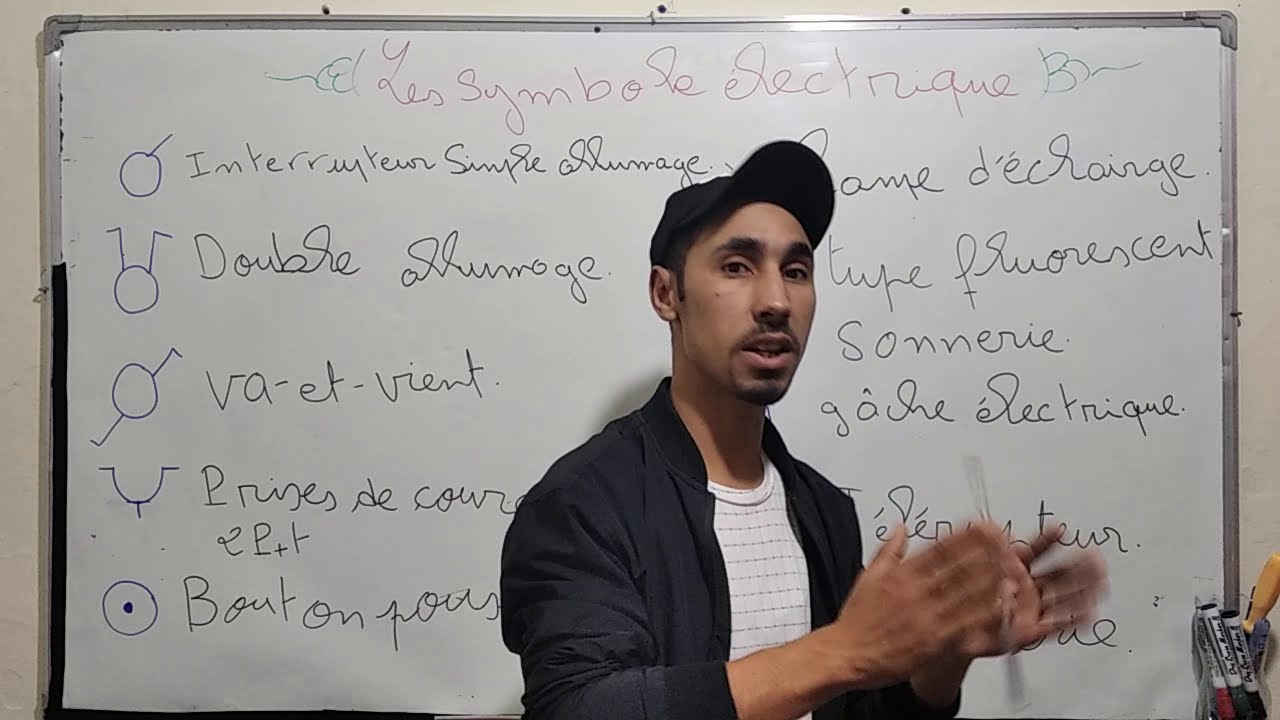 Les symbole électrique
Interrupteur Simple allumage.
Double allumage.
va-et-vient.
Prises de
2P+t
Bouton
Lampe d'éclairge.
type fluorescent
Sonnerie.
gâche électrique.